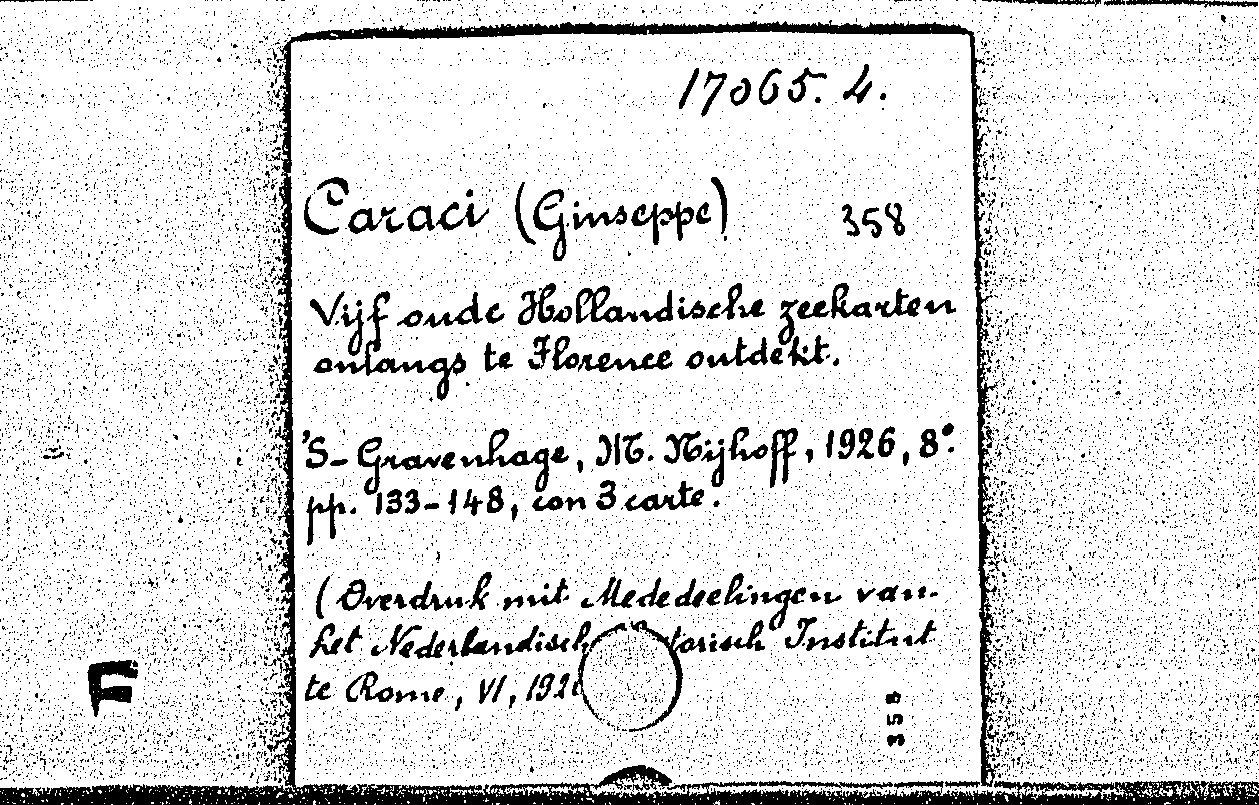 17065. 4.
Caraci (Giuseppe) 358
Vijf oude Hollandische zeekarten
onlangs te Florence ontdekt.
'S-Gravenhage, M. Nijhoff, 1926, 8°.
pp. 133-148, con 3 carte.
(Overdruk mit Mededeelingen van
het Nederlandisch torisch Institut
te Rome, VI, 192
358
F